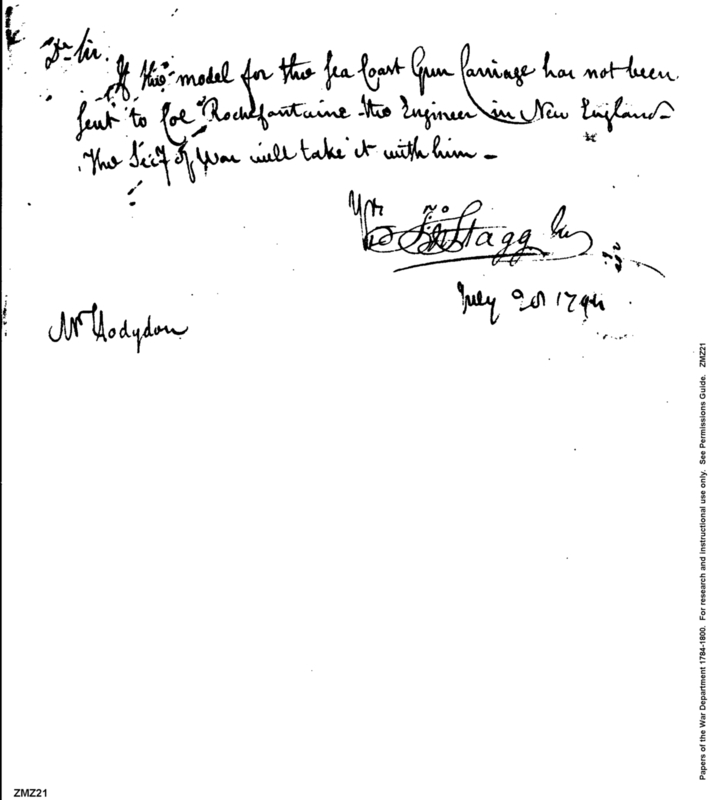 Dr Sir.
If the model for the Sea Coast Gun Carriage has not been
sent to Col Rochefontaine the Engineer in New England—
The Secy of War will take it with him —
Yrs
Jno Stagg Jur
July 1794
Mr Hodgdon
Papers of the War Department 1784-1800. For research and instructional use only. See Permissions Guide. ZMZ21
ZMZ21